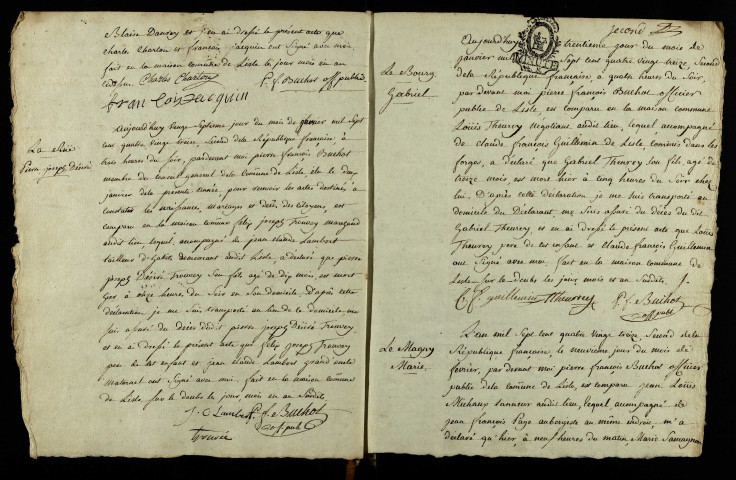 Blaise Dauvrey et j'en ai dressé le présent acte que
Charle Charlon et françois jacquin ont signé avec moi,
fait en la maison commune de Lisle le jour mois et an
Charles Charlon P. f. Buchot off publi
fran coy Jacquin
La
Pierre joseph Désiré
aujourdhuy vingt septieme jour du mois de janvier mil sept
cent quatre vingt treize, second de la République françoise à
trois heures du soir, pardevant moi pierre françois Buchot
membre du conseil general de la commune de Lisle, élu le douze
janvier de la présente année, pour recevoir les actes destinés à
constater les naissances, mariages et décès des citoyens, est
comparu en la maison commune felix joseph Trouvey marchand
audit lieu, lequel, accompagné de jean claude Lambert
tailleur d'habits demeurant audit Lisle, a déclaré que pierre
joseph Désiré Trouvey son fils, agé de dix mois, est mort
hier à onze heure du soir en son domicile. D'après cette
déclaration je me suis transporté au lieu de ce domicile, me
suis assuré du décès dudit pierre joseph Désiré Trouvey
et en ai dressé le présent acte que felix joseph Trouvey
pere de cet enfant et jean claude Lambert grand oncle
maternel ont signé avec moi. fait en la maison commune
de Lisle sur le doubs le jour, mois et an susdits
J. C Lambert P. f. Buchot
off publ
trouvée
second
Le Bourg
Gabriel
Aujourd'huy trentieme jour du mois de
janvier mil sept cent quatre vingt treize, second
de la République françoise, à quatre heures du soir,
par devant moi pierre françois Buchot officier
public de Lisle, est comparu en la maison commune
Loüis Theurey négotiant audit lieu, lequel accompagné
de claude françois Guillemin de Lisle commis dans les
forges, a déclaré que Gabriel Theurey son fils, agé de
treize mois est mort hier à cinq heures du soir chez
lui. D'après cette déclaration, je me suis transporté au
domicile du Déclarant, me suis assuré du décès du dit
Gabriel Theurey, et en ai dressé le présent acte que Loüis
Theurey pere de cet enfant et claude françois Guillemin
ont signé avec moi. fait en la maison commune de
Lisle sur le doubs les jour, mois et an susdits.
C. f. guillemin Theurey P. f. Buchot
off publ
Le Magny
Marie
L'an mil sept cent quatre vingt treize, second de la
République françoise, le neuvieme jour du mois de
février, par devant moi pierre françois Buchot officier
public de la commune de Lisle, est comparu jean Loüis
Michaux tanneur audit lieu, lequel accompagné de
jean françois Page aubergiste au même endroit, m'a
déclaré qu'hier, à neuf heures du matin, Marie